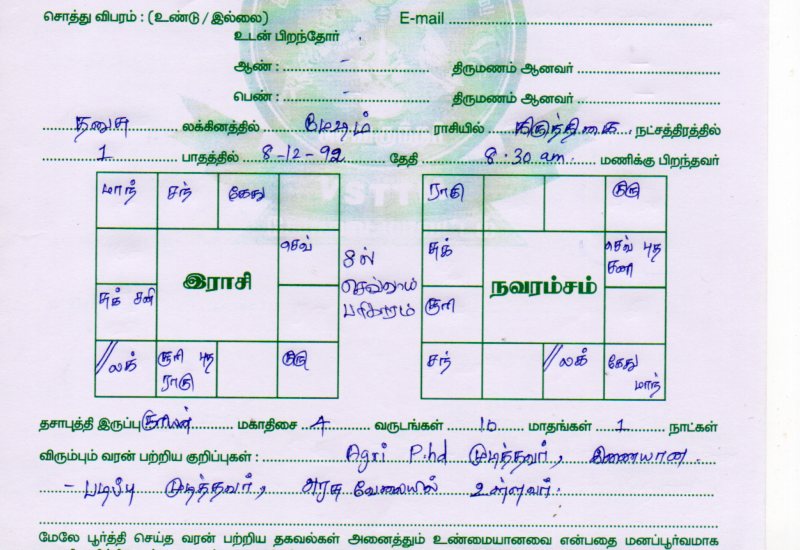 சொத்து விபரம் : (உண்டு / இல்லை) E-mail
உடன் பிறந்தோர்
ஆண் : - திருமணம் ஆனவர்
பெண் : - திருமணம் ஆனவர்
தனுசு லக்கினத்தில் மேஷம் ராசியில் கிருத்திகை நட்சத்திரத்தில்
1 பாதத்தில் 8-12-92 தேதி 8:30 am. மணிக்கு பிறந்தவர்
மாந் சந் கேது
ராகு குரு
செவ்
சுக்
செவ் புத சனி
இராசி
8ல் செவ்வாய் பரிகாரம்
நவரம்சம்
சுக் சனி
சூரி
லக் சூரி புத ராகு குரு
சந் லக் கேது மாந்
தசாபுத்தி இருப்பு சூரியன் மகாதிசை 4 வருடங்கள் 10 மாதங்கள் 1 நாட்கள்
விரும்பும் வரன் பற்றிய குறிப்புகள் : Agri P.hd முடித்தவர், இணையான
- படிப்பு முடித்தவர், அரசு வேலையில் உள்ளவர்.
மேலே பூர்த்தி செய்த வரன் பற்றிய தகவல்கள் அனைத்தும் உண்மையானவை என்பதை மனப்பூர்வமாக